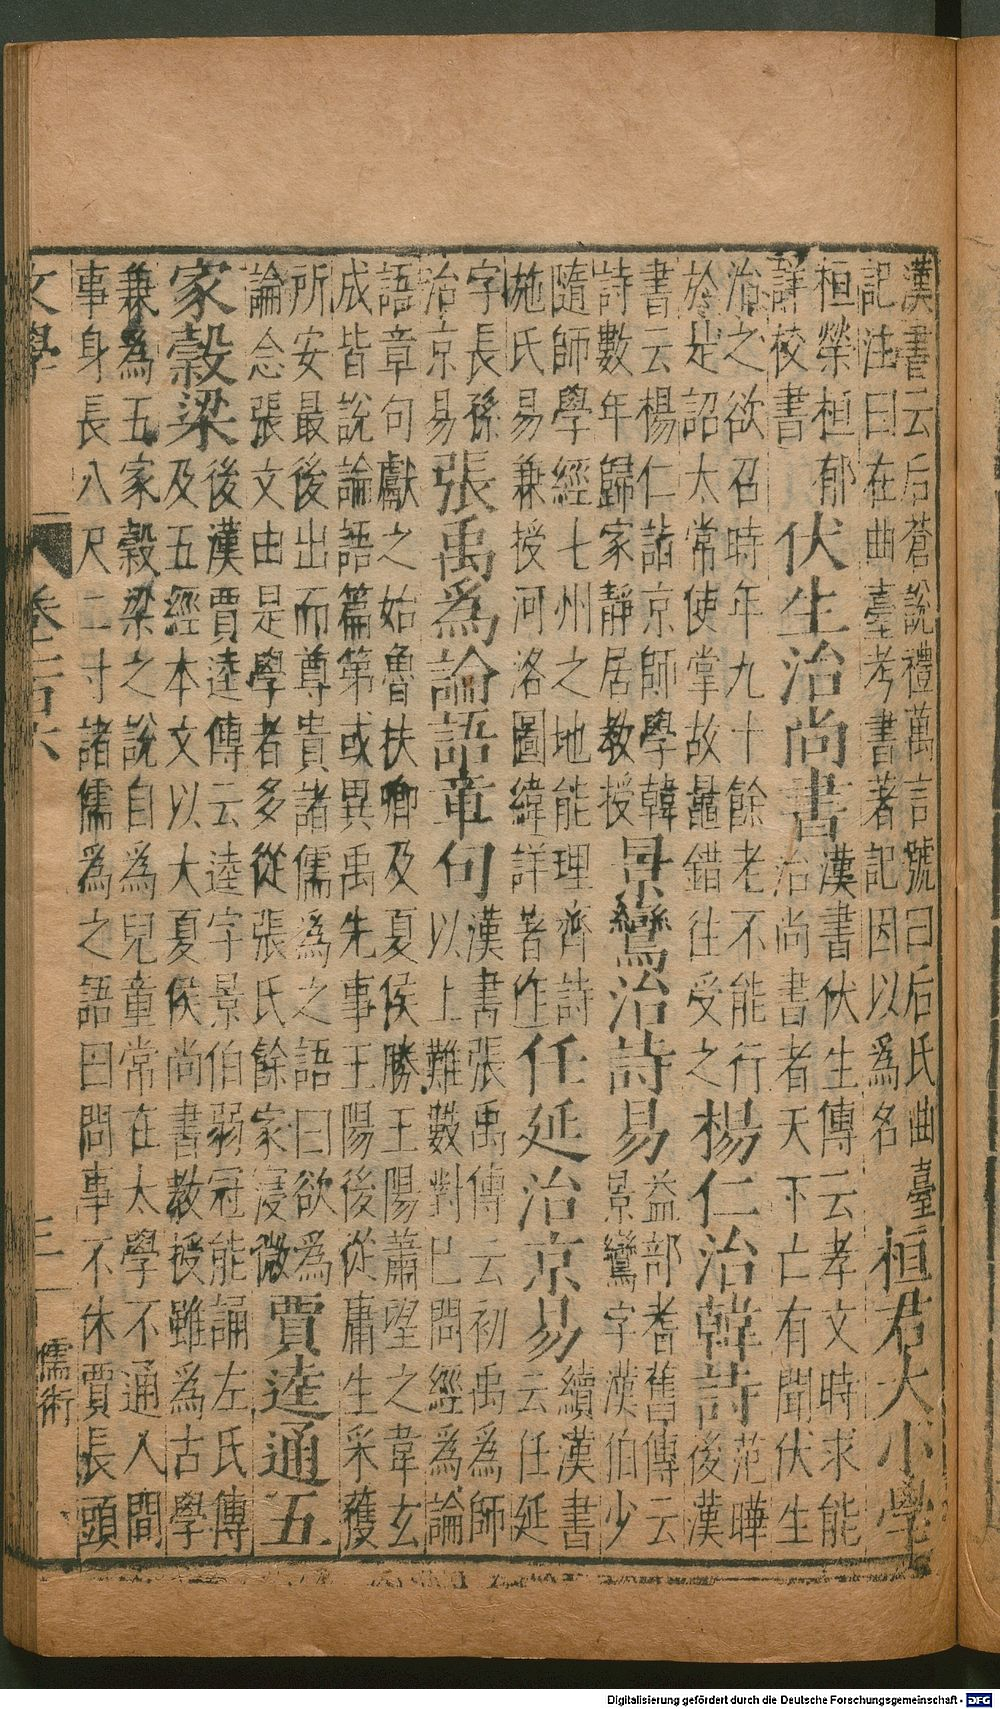 漢書云后蒼說禮萬言號曰后氏曲臺
記注曰在曲臺考書著記因以為名
桓君大小學
桓榮桓郁
詳校書
伏生治尚書
漢書伏生傳云孝文時求能
治尚書者天下亡有聞伏生
治之欲召時年九十餘老不能行
於是詔太常使掌故鼂錯往受之
楊仁治韓詩
范曄
後漢
書云楊仁詣京師學韓
詩數年歸家靜居教授
景鸞治詩易
益部耆舊傳云
景鸞字漢伯少
隨師學經七州之地能理齊詩
施氏易兼授河洛圖緯詳著作
任延治京易
續漢書
云任延
字長孫
治京易
張禹為論語章句
漢書張禹傳云初禹為師
以上難數對已問經為論
語章句獻之始魯扶卿及夏侯勝王陽蕭望之韋玄
成皆說論語篇第或異禹先事王陽後從庸生采獲
所安最後出而尊貴諸儒為之語曰欲為
論念張文由是學者多從張氏餘家寖微
賈逵通五
家穀梁
後漢賈逵傳云逵字景伯弱冠能誦左氏傳
及五經本文以大夏侯尚書教授雖為古學
兼為五家穀梁之說自為兒童常在太學不通人間
事身長八尺二寸諸儒為之語曰問事不休賈長頭
文學
三
儒術
Digitalisierung gefördert durch die Deutsche Forschungsgemeinschaft - DFG